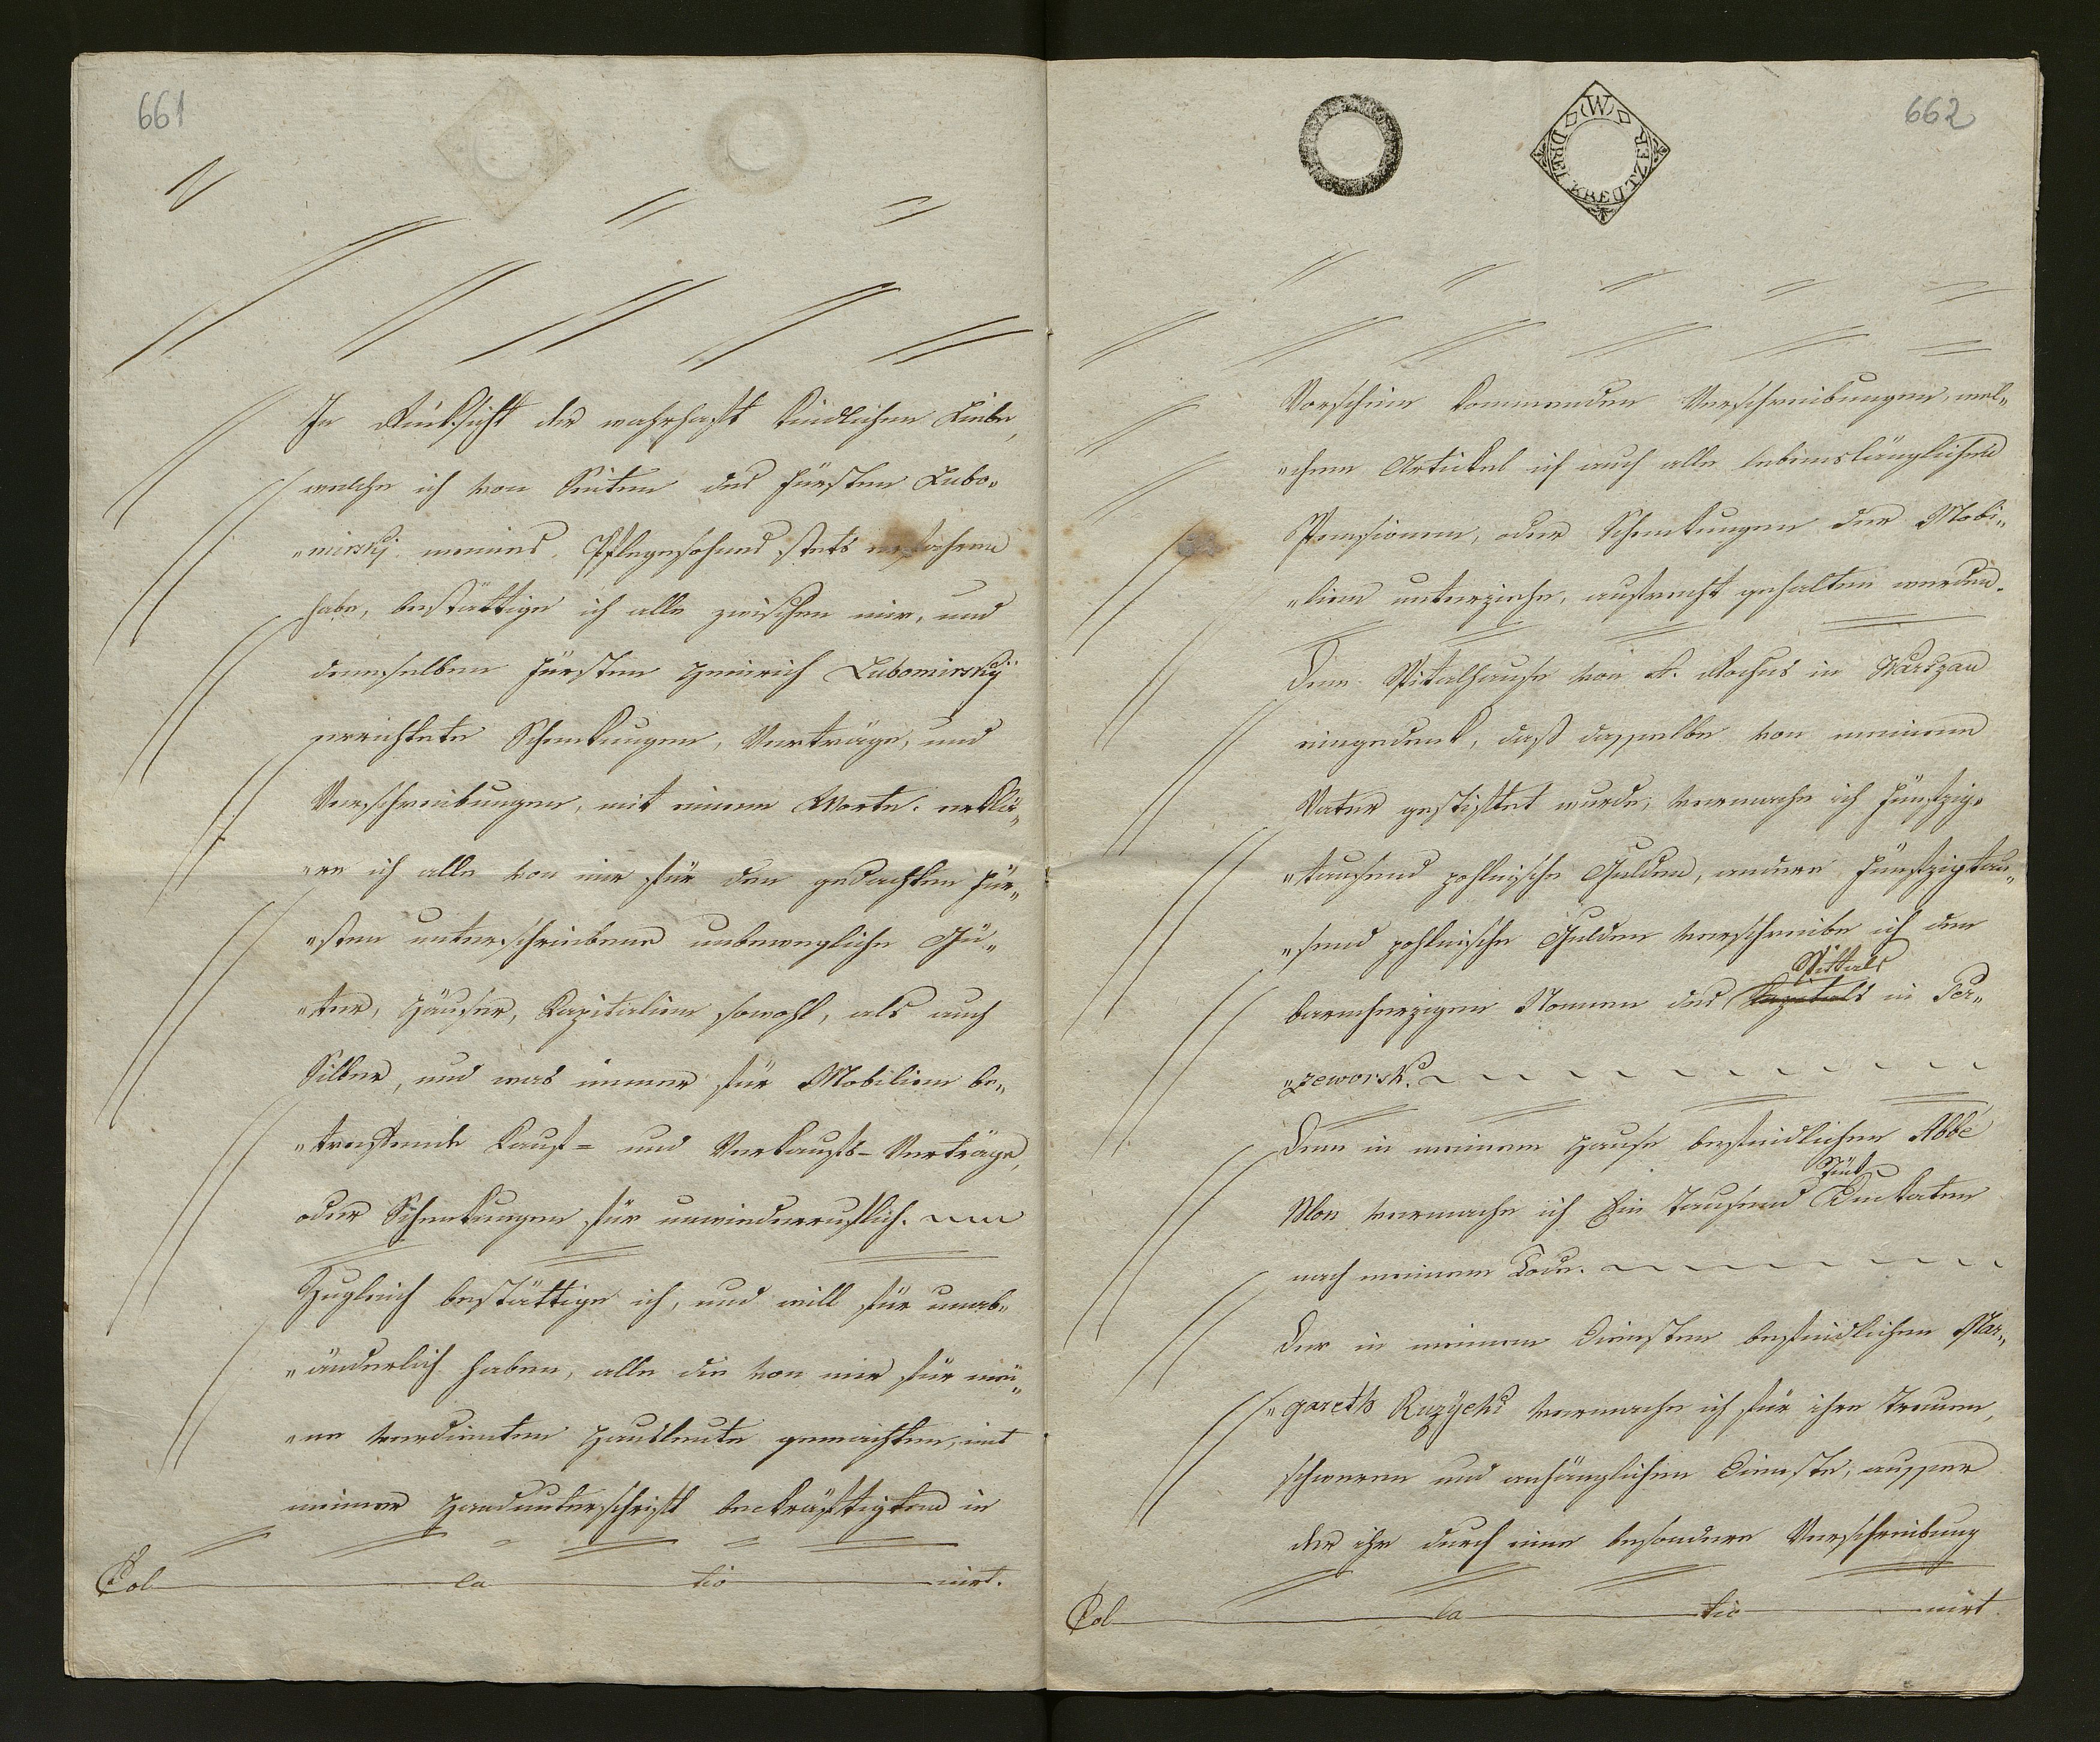 661
In Rücksicht der wahrhaft kindlichen Liebe,
welche ich von Seiten des Fürsten Lubo„
„mirskÿ meines Pflegesohnes stets erfahren
habe, bestättige ich alle zwischen mir, und
demselben Fürsten Heinrich Lubomirskÿ
errichtete Schenkungen, Verträge, und
Verschreibungen, mit einem Worte: erklä„
„re ich alle von mir für den gedachten Für„
„sten unterschriebene unbewegliche Gü„
„ter, Häuser, Kapitalien sowohl, als auch
Silber, und was immer für Mobilien be„
„treffende Kauf= und Verkaufs-Verträge,
oder Schenkungen für unwiederruflich.
Zugleich bestättige ich, und will für unab„
„änderlich haben, alle die von mir für mei„
„ne verdienten Hausleute gemachten, mit
meiner Handunterschrift bekräftigten in
Col la tio nirt.
662
W
DREI KREUTZER
Vorschein kommenden Verschreibungen, wel„
„chem Artickel ich auch alle lebenslänglichen
Pensionen, oder Schenkungen der Mobi„
„lien unterziehe, aufrecht gehalten werden.
Dem Spitalhause von St. Rochus in Warszau
eingedenk, daß dasselbe von meinem
Vater gestiftet wurde, vermache ich Fünfzig„
„tausend pohlnische Gulden, andere Fünfzigtau„
„send pohlnische Gulden verschreibe ich den
Spittals
barmherzigen Nonnen des Kapitals in Per„
„zeworsk.
Dem in meinem Hause befindlichen Abbé
Stück
Mon vermache ich Ein Tausend Dukaten
nach meinem Tode.
Der in meinen Diensten befindlichen Mar„
„gareth Ruzÿcki vermache ich für ihre treuen,
schweren und anhänglichen Dienste, ausser
der ihr durch eine besondere Verschreibung
Col la tio nirt.